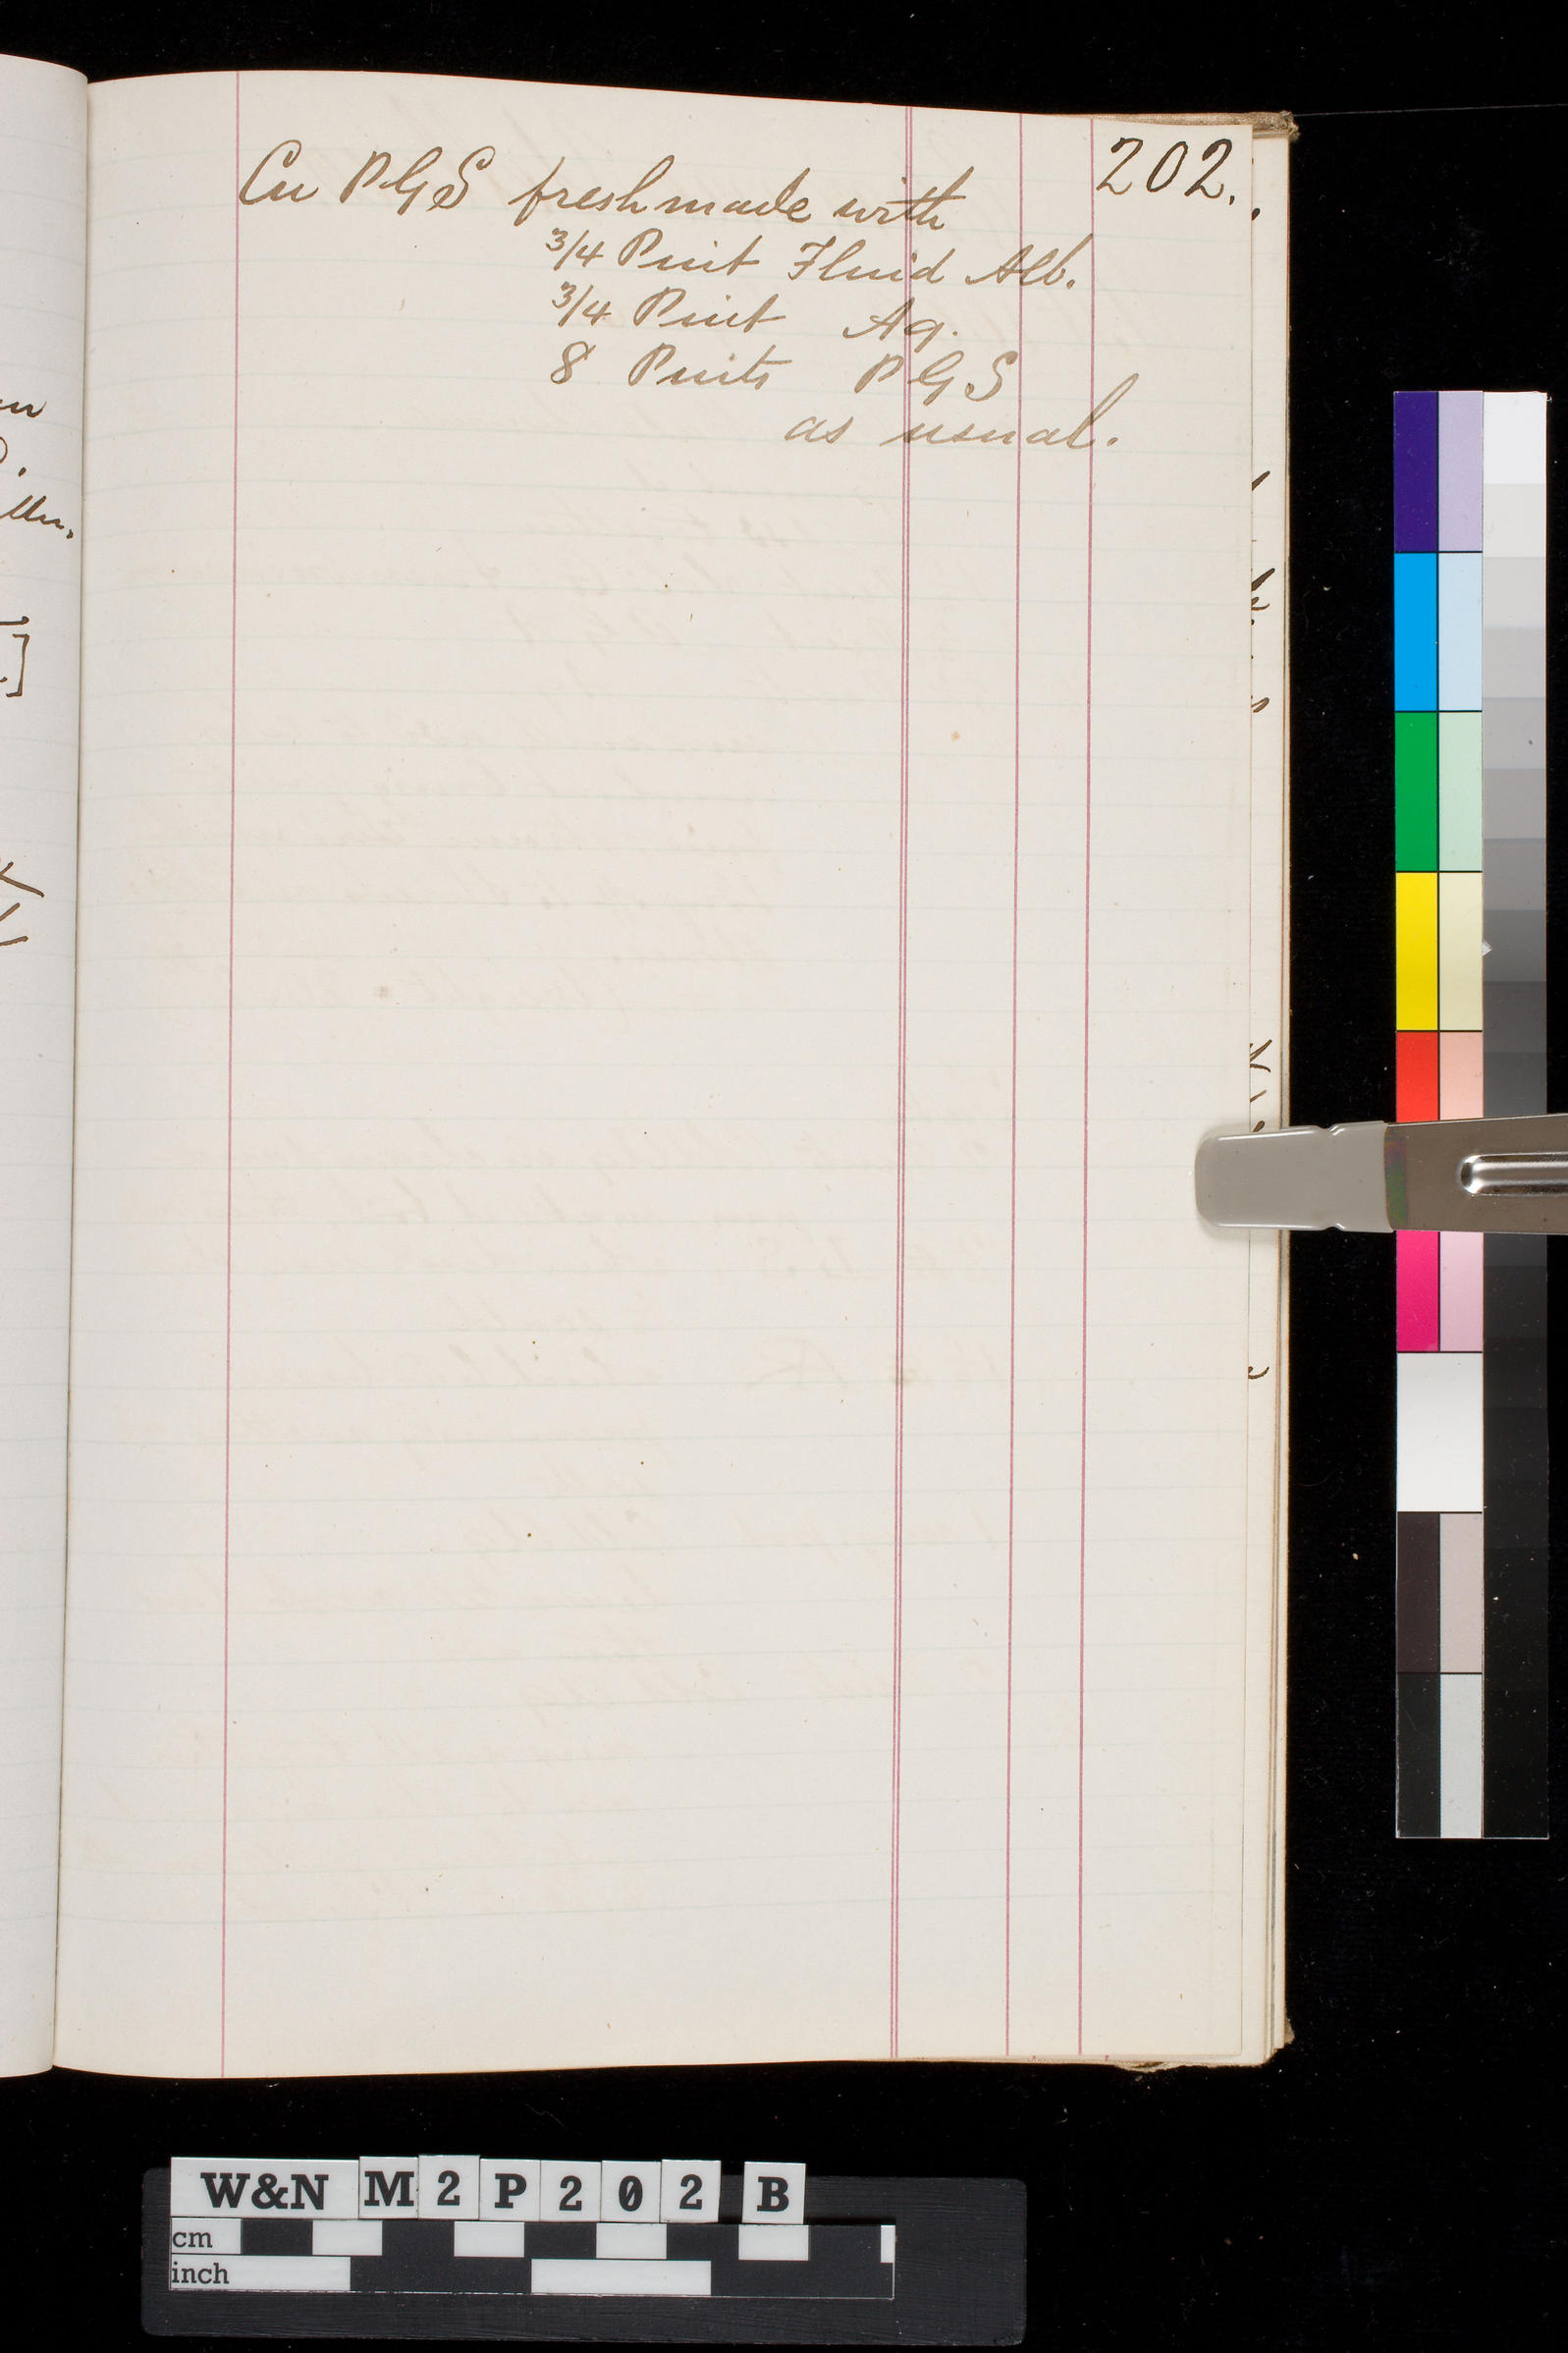 202.
Cu PGS fresh made with
3/4 Pint Fluid Alb.
3/4 Pint Aq.
8 Pints PGS
as usual.
W&N M2P202 B
cm
inch